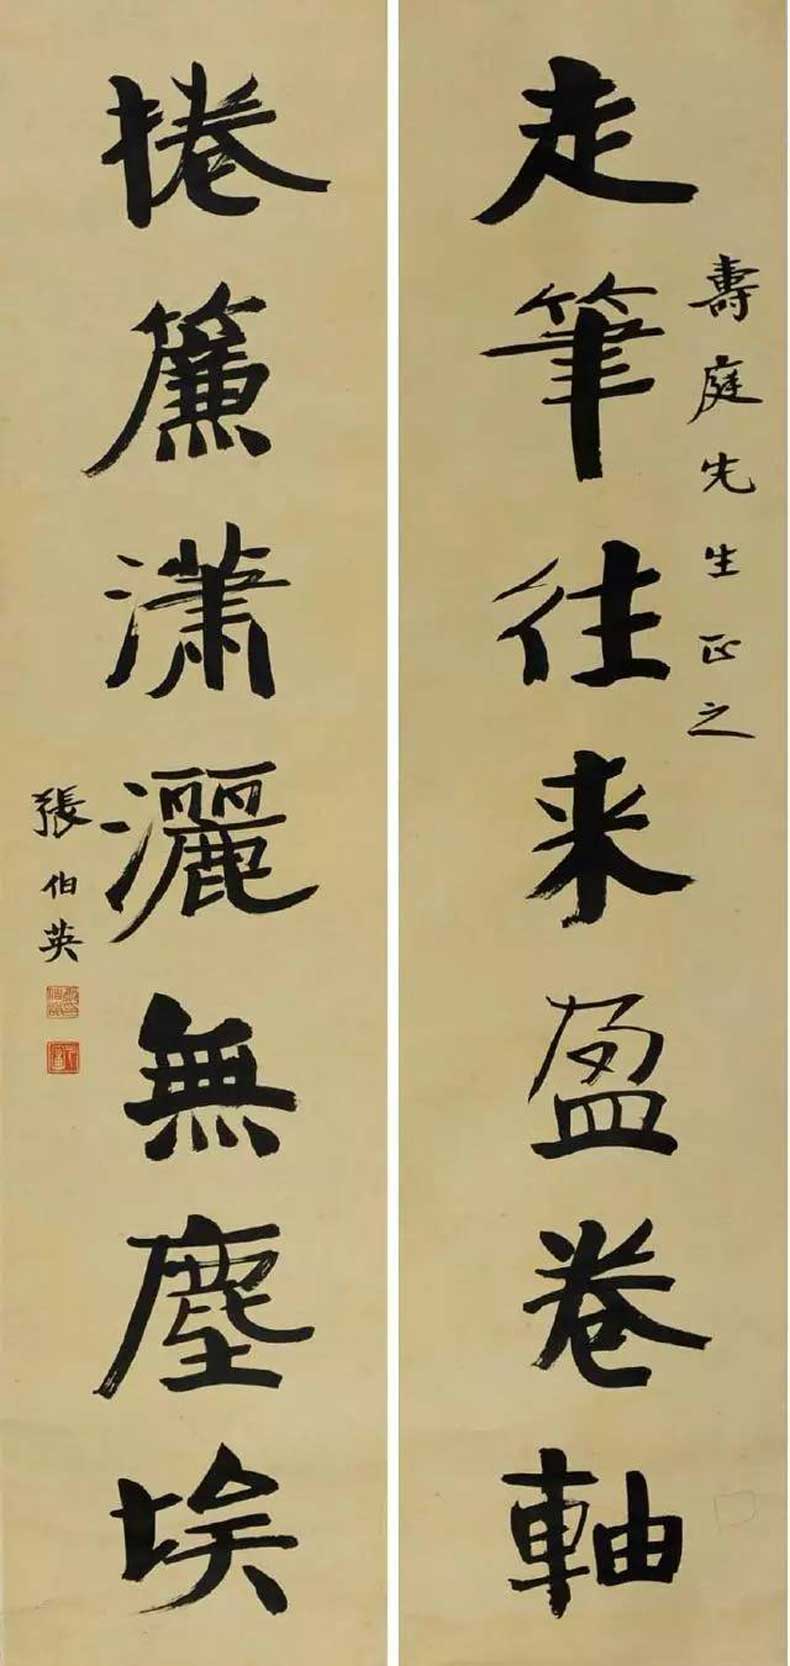 走筆往来盈卷軸
壽庭先生正之
捲簾瀟灑無塵埃
張伯英